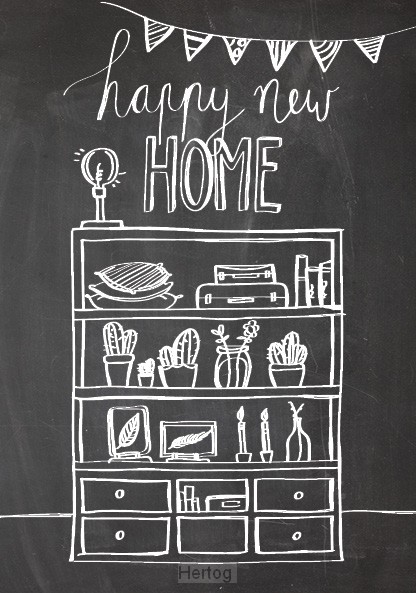 happy new
HOME
Hertog